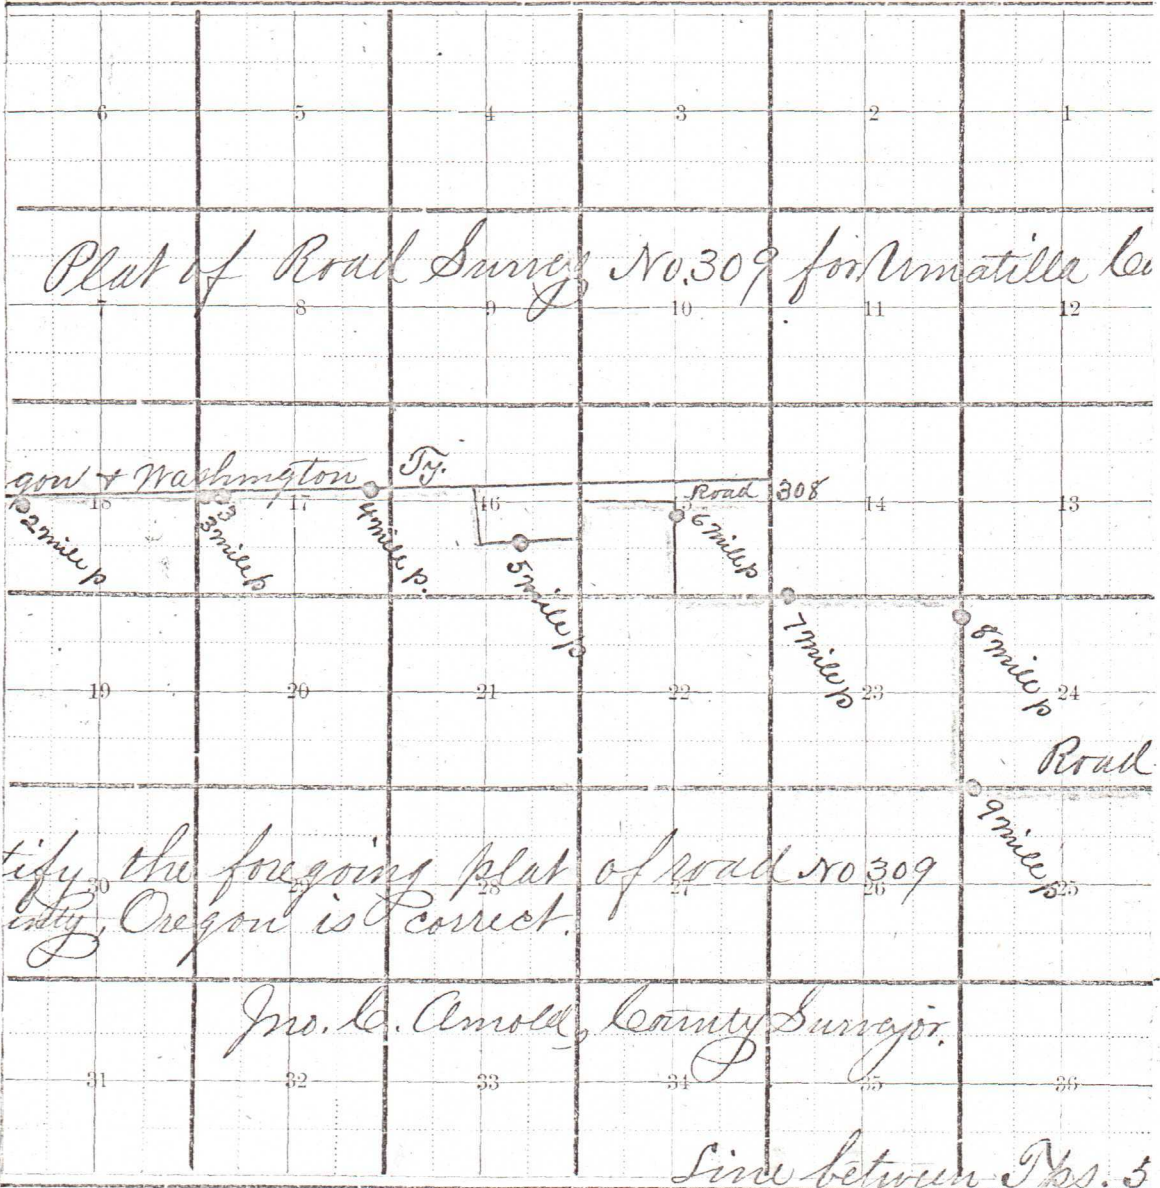 6 5 4 3 2 1
Plat of Road Survey No. 309 for Umatilla Co
7 8 9 10 11 12
gon & Washington Ty.
Road 308
18 17 16 15 14 13
3
2 mile p
3 mile p
4 mile p.
5 mile p
6 mile p
7 mile p
8 mile p
19 20 21 22 23 24
Road
9 mile p
tify the foregoing plat of road No 309
30 29 28 27 26 25
unty, Oregon is correct.
Jno. C. Arnold, County Surveyor.
31 32 33 34 35 36
Line between Tps. 5